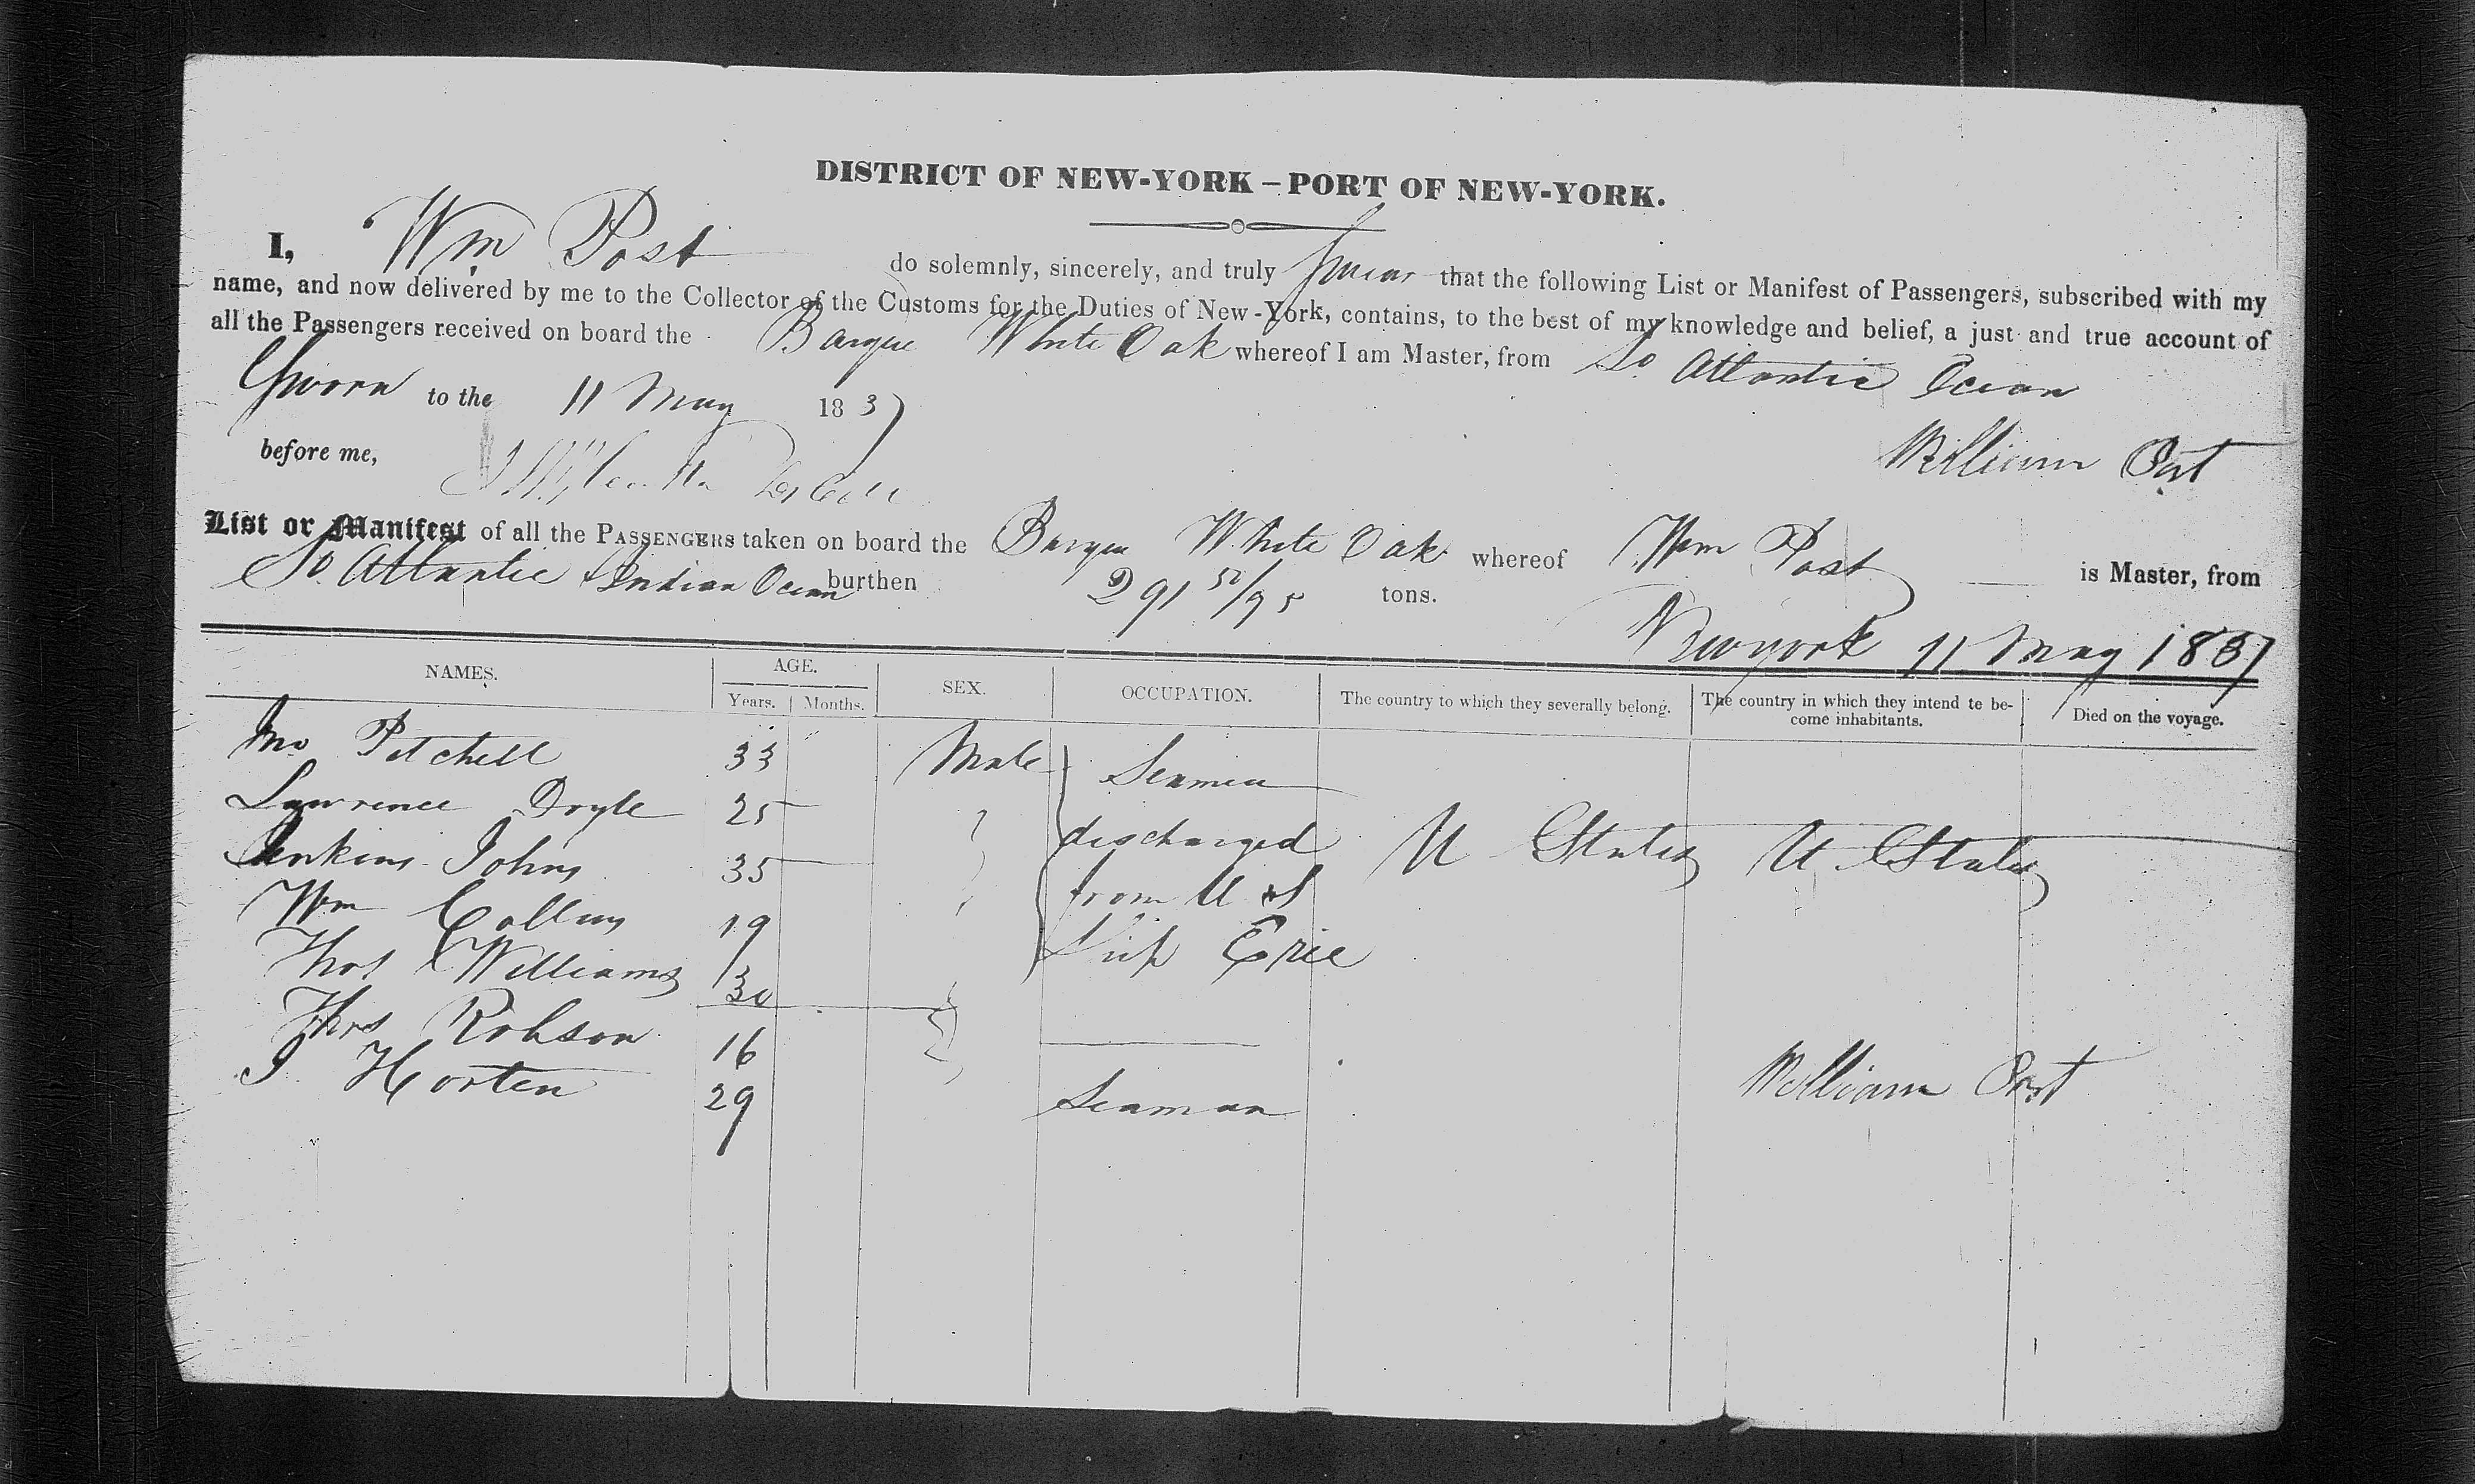 DISTRICT OF NEW-YORK – PORT OF NEW-YORK.
I, Wm Post do solemnly, sincerely, and truly Swear that the following List or Manifest of Passengers, subscribed with my
name, and now delivered by me to the Collector of the Customs for the Duties of New-York, contains, to the best of my knowledge and belief, a just and true account of
all the Passengers received on board the Barque White Oak whereof I am Master, from So. Atlantic Ocean
Sworn to the 11 May 1837
William Post
before me,
List or Manifest of all the PASSENGERS taken on board the Barque White Oak whereof Wm Post is Master, from
So. Atlantic & Indian Ocean burthen 291 51/95 tons.
Newyork 11 May 1837
NAMES. AGE. SEX. OCCUPATION. The country to which they severally belong. The country in which they intend te be-come inhabitants. Died on the voyage.
Years. Months.
Jno Pitchell 33 Male Seamen
Lawrence Doyle 25 discharged U States U States
Jenkins Johns 35 from U S
Wm Collins 19 Ship Erie
Thos Williams 30
Thos Robson 16
J Horten 29 Seaman
William Post